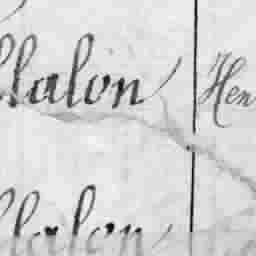 llalon Hen
llalon